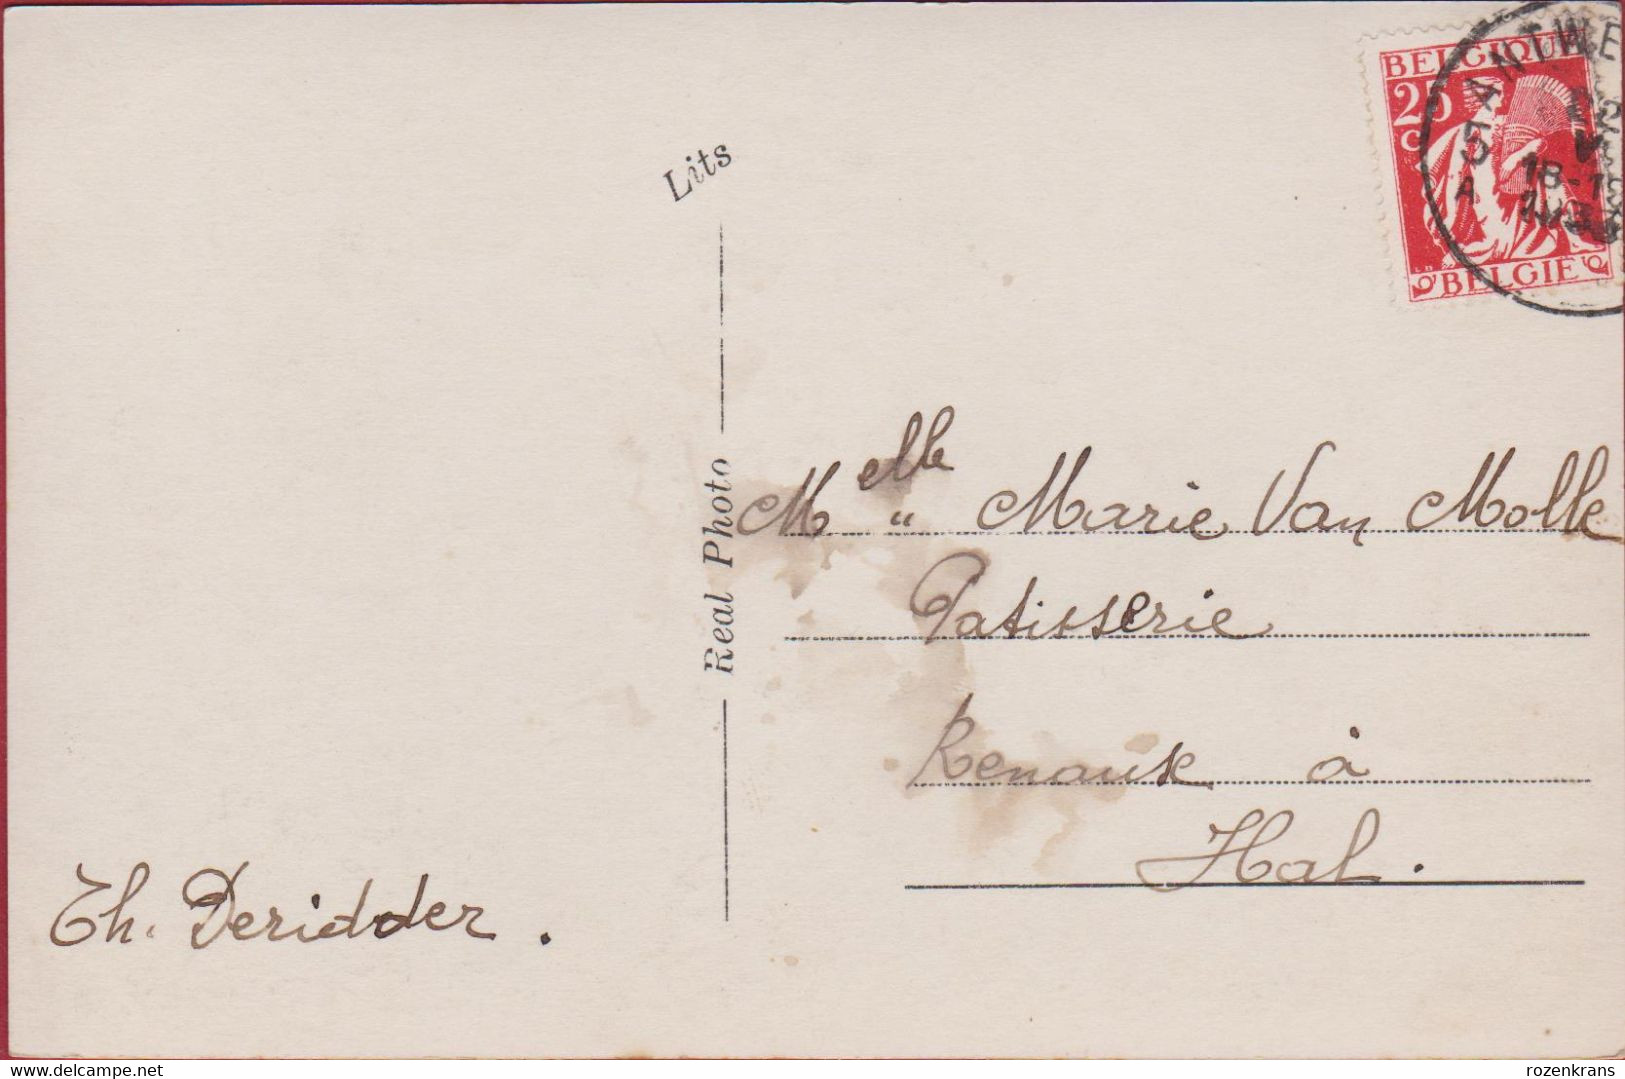 Lits
Real Photo
BELGIQUE
25
C
BELGIE
ANTWE
5
A
18-19
193
Melle Marie Van Molle
Patisserie
à
Hal.
Th. Deridder.
www.delcampe.net
rozenkrans